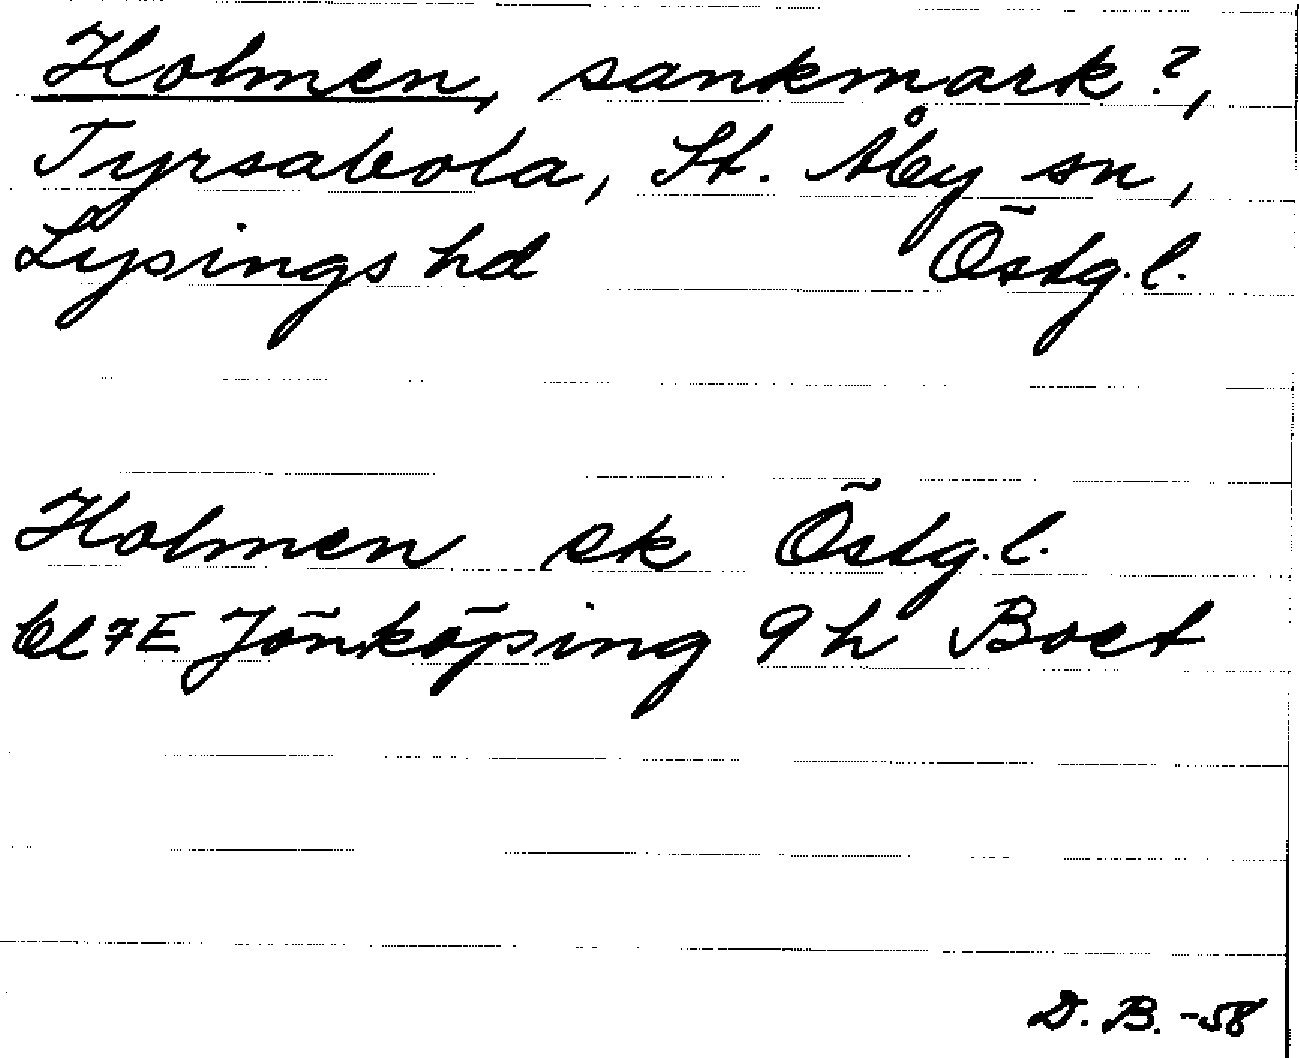 Holmen, sankmark?,
Tyrsabola, St. Åby sn,
Lysings hd Östg.l.
Holmen ek Östg.l.
bl 7E Jönköping 9h Boet
D.B. -58